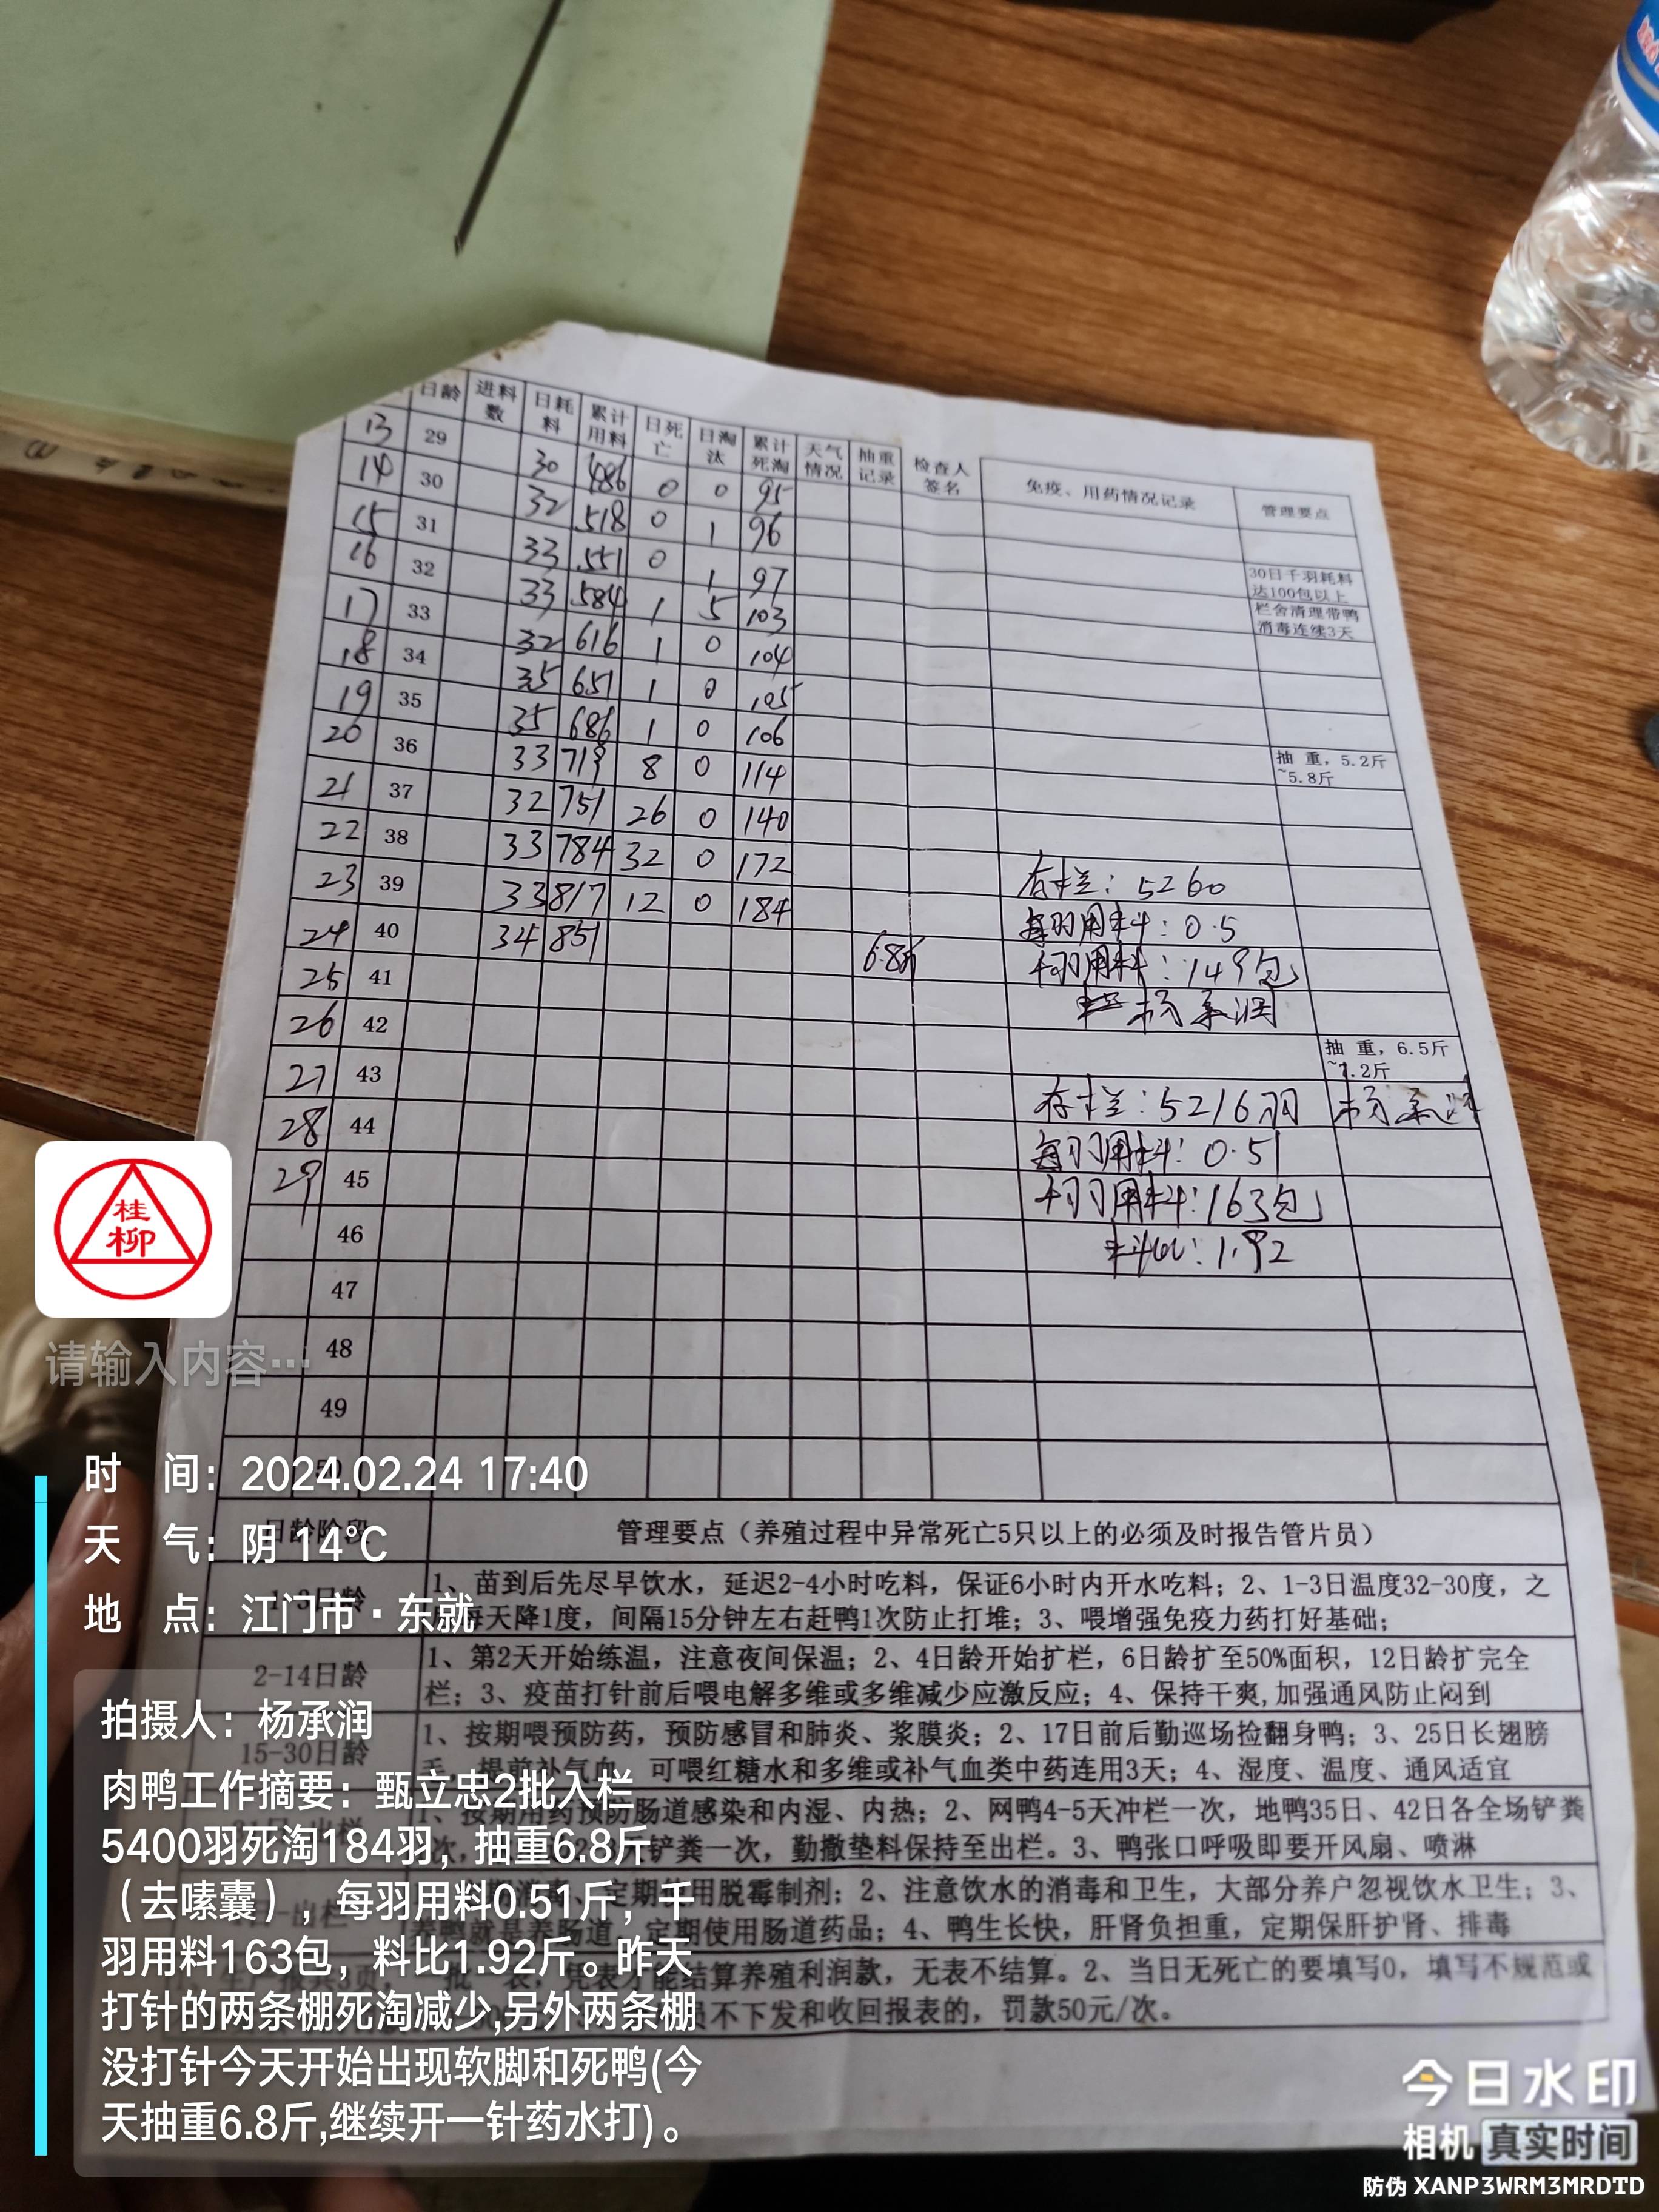 日龄 进料数 日耗料 累计用料 日死亡 日淘汰 累计死淘 天气情况 抽重记录 检查人签名 免疫、用药情况记录 管理要点
13 29 30 486 0 0 95
14 30 32 518 0 1 96 30日千羽耗料达100包以上
15 31 33 551 0 1 97 栏舍清理带鸭消毒连续3天
16 32 33 584 1 5 103
17 33 32 616 1 0 104
18 34 35 651 1 0 105
19 35 35 686 1 0 106 抽 重，5.2斤~5.8斤
20 36 33 719 8 0 114
21 37 32 751 26 0 140
22 38 33 784 32 0 172 存栏：5260
23 39 33 817 12 0 184 每羽用料：0.5
24 40 34 851 6.8斤 千羽用料：149包
25 41 杨承润
26 42 抽 重，6.5斤~7.2斤
27 43 存栏：5216羽 杨承润
28 44 每羽用料：0.51
29 45 千羽用料：163包
46 料比：1.92
47
48
49
日龄阶段 管理要点（养殖过程中异常死亡5只以上的必须及时报告管片员）
1、苗到后先尽早饮水，延迟2-4小时吃料，保证6小时内开水吃料；2、1-3日温度32-30度，之
每天降1度，间隔15分钟左右赶鸭1次防止打堆；3、喂增强免疫力药打好基础；
2-14日龄 1、第2天开始练温，注意夜间保温；2、4日龄开始扩栏，6日龄扩至50%面积，12日龄扩完全
栏；3、疫苗打针前后喂电解多维或多维减少应激反应；4、保持干爽,加强通风防止闷到
15-30日龄 1、按期喂预防药，预防感冒和肺炎、浆膜炎；2、17日前后勤巡场捡翻身鸭；3、25日长翅膀
毛，提前补气血，可喂红糖水和多维或补气血类中药连用3天；4、湿度、温度、通风适宜
1、按期用药预防肠道感染和内湿、内热；2、网鸭4-5天冲栏一次，地鸭35日、42日各全场铲粪
铲粪一次，勤撒垫料保持至出栏。3、鸭张口呼吸即要开风扇、喷淋
用脱霉制剂；2、注意饮水的消毒和卫生，大部分养户忽视饮水卫生；3、
养鸭就是养肠道，定期使用肠道药品；4、鸭生长快，肝肾负担重，定期保肝护肾、排毒
凭表才能结算养殖利润款，无表不结算。2、当日无死亡的要填写0，填写不规范或
员不下发和收回报表的，罚款50元/次。
桂
柳
请输入内容…
时 间：2024.02.24 17:40
天 气：阴 14℃
地 点：江门市·东就
拍摄人：杨承润
肉鸭工作摘要：甄立忠2批入栏
5400羽死淘184羽，抽重6.8斤
（去嗉囊），每羽用料0.51斤，千
羽用料163包，料比1.92斤。昨天
打针的两条棚死淘减少,另外两条棚
没打针今天开始出现软脚和死鸭(今
天抽重6.8斤,继续开一针药水打)。
今日水印
相机 真实时间
防伪 XANP3WRM3MRDTD